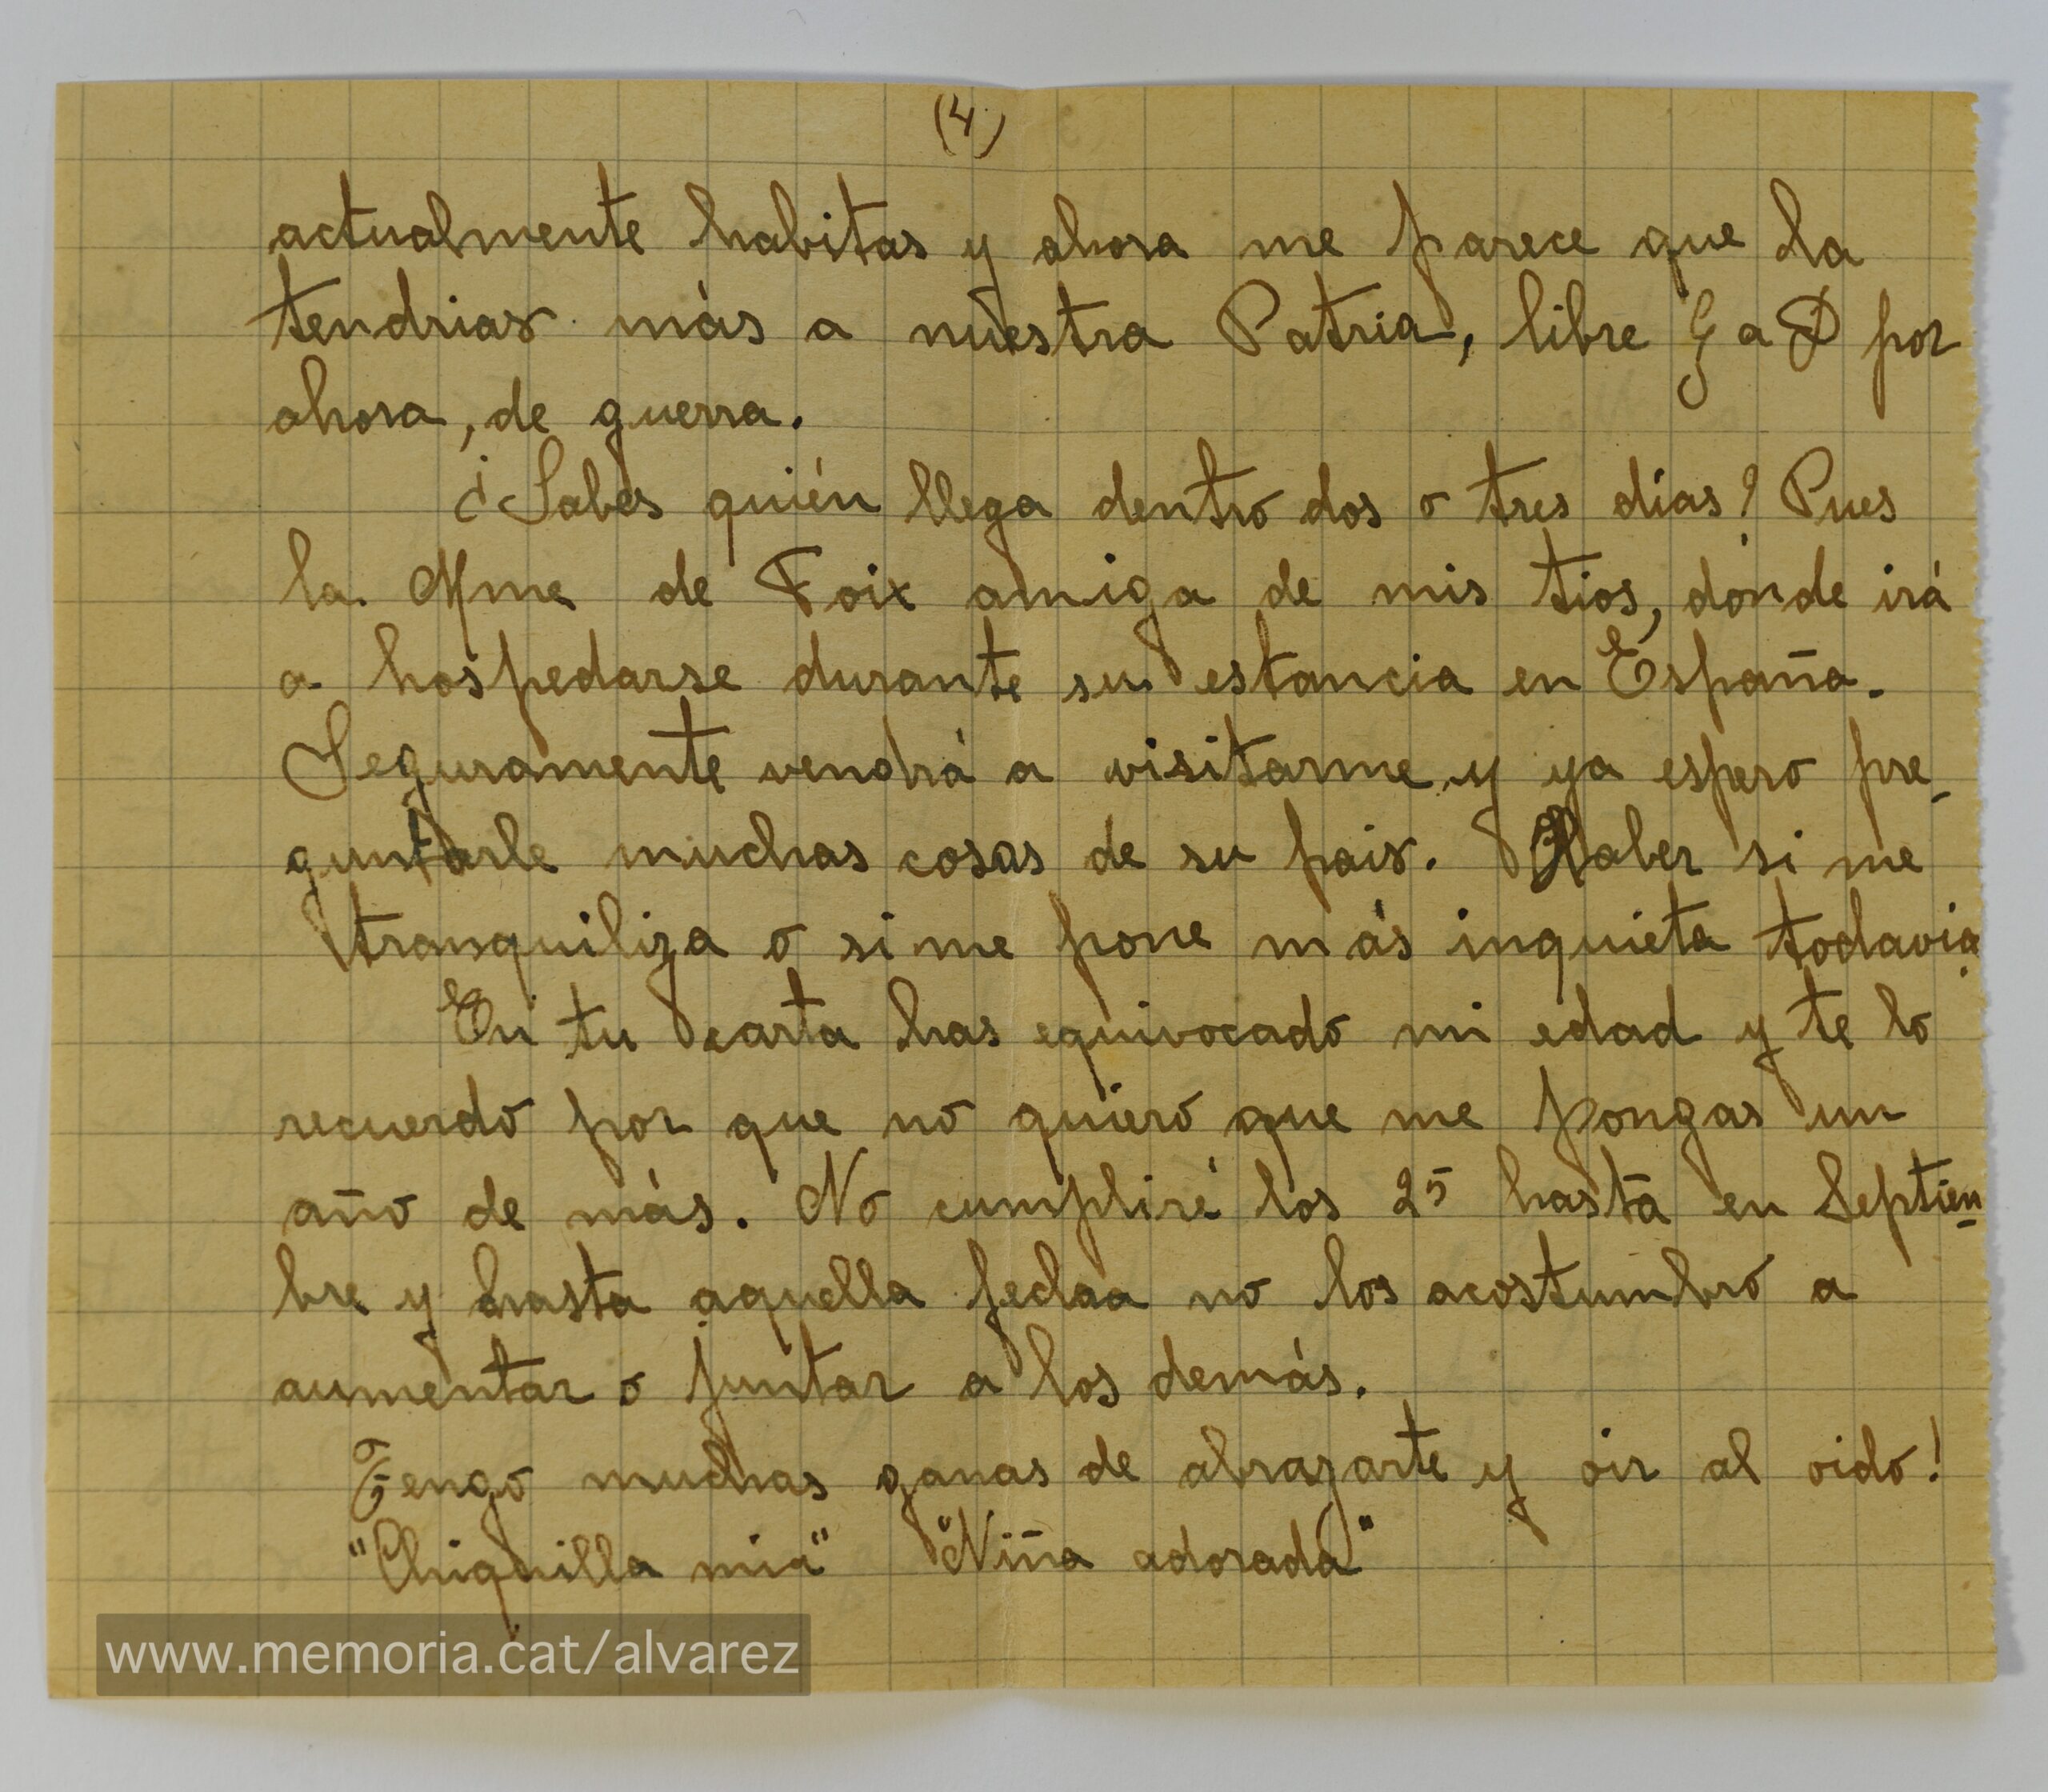 (4)
actualmente habitas y ahora me parece que la
tendrias más a nuestra Patria, libre G a D por
ahora, de guerra.
¿Sabes quién llega dentro dos o tres días? Pues
la Mme de Foix amiga de mis tios, dónde irá
a hospedarse durante su estancia en España.
Seguramente vendrá a visitarme y ya espero pre-
guntarle muchas cosas de su pais. Haber si me
tranquiliza o si me pone más inquieta todavia.
En tu carta has equivocado mi edad y te lo
recuerdo por que no quiero que me pongas un
año de más. No cumpliré los 25 hasta en Septiem-
bre y hasta aquella fecha no los acostumbro a
aumentar o juntar a los demás.
Tengo muchas ganas de abrazarte y oir al oido!
"Chiquilla mia" "Niña adorada"
www.memoria.cat/alvarez